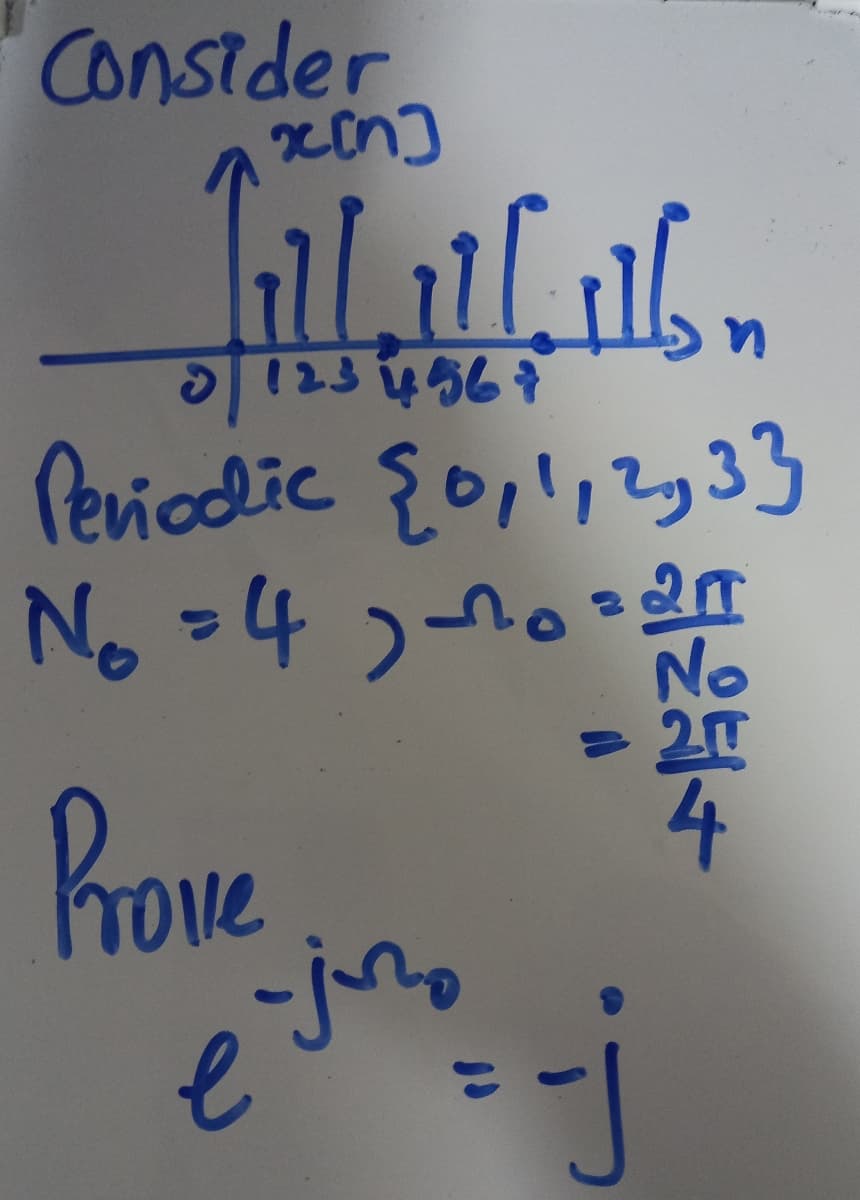 Consider
x[n]
n
0 1 2 3 4 5 6 7
Periodic {0, 1, 2, 3}
N₀ = 4 , Ω₀ = 2π/N₀
= 2π/4
Prove
e^-jΩ₀ = -j